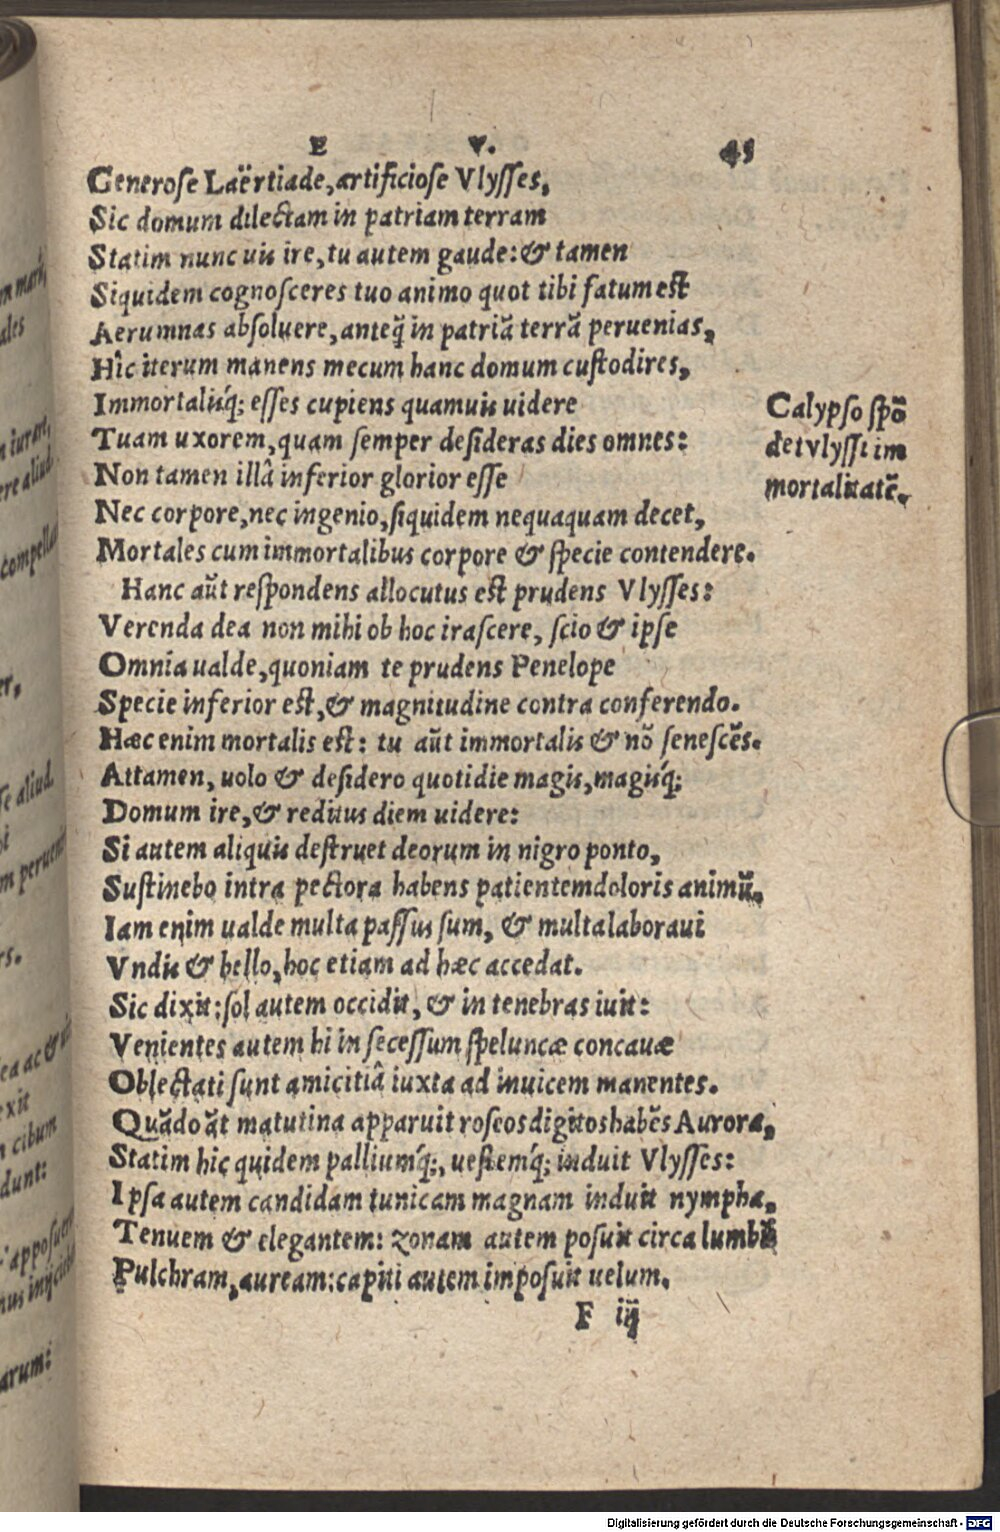 E V. 45
Generose Laërtiade, artificiose Vlysses,
Sic domum dilectam in patriam terram
Statim nunc uis ire, tu autem gaude: & tamen
Siquidem cognosceres tuo animo quot tibi fatum est
Aerumnas absoluere, anteq̃ in patriã terrã peruenias,
Hîc iterum manens mecum hanc domum custodires,
Immortalisq́; esses cupiens quamuis uidere
Tuam uxorem, quam semper desideras dies omnes:
Non tamen illâ inferior glorior esse
Nec corpore, nec ingenio, siquidem nequaquam decet,
Mortales cum immortalibus corpore & specie contendere.
Hanc aũt respondens allocutus est prudens Vlysses:
Verenda dea non mihi ob hoc irascere, scio & ipse
Omnia ualde, quoniam te prudens Penelope
Specie inferior est, & magnitudine contra conferendo.
Hæc enim mortalis est: tu aũt immortalis & nõ senescẽs.
Attamen, uolo & desidero quotidie magis, magisq́;
Domum ire, & reditus diem uidere:
Si autem aliquis destruet deorum in nigro ponto,
Sustinebo intra pectora habens patientem doloris animũ,
Iam enim ualde multa passus sum, & multa laboraui
Vndis & bello, hoc etiam ad hæc accedat.
Sic dixit: sol autem occidit, & in tenebras iuit:
Venientes autem hi in secessum speluncæ concauæ
Oblectati sunt amicitiâ iuxta ad inuicem manentes.
Quãdo ãt matutina apparuit roseos digitos habẽs Aurora,
Statim hic quidem palliumq́;, uestemq́; induit Vlysses:
Ipsa autem candidam tunicam magnam induit nympha,
Tenuem & elegantem: zonam autem posuit circa lumbis
Pulchram, auream: capiti autem imposuit uelum.
F iij
Calypso spõ
det vlyssi im
mortalitatẽ.
n mark,
ales
n iurare,
ere aliud
compellat
er,
se aliud
m peruenit
rs.
ea ac &
exit
n cibum
dunt:
apposuer
arum:
Digitalisierung gefördert durch die Deutsche Forschungsgemeinschaft - DFG